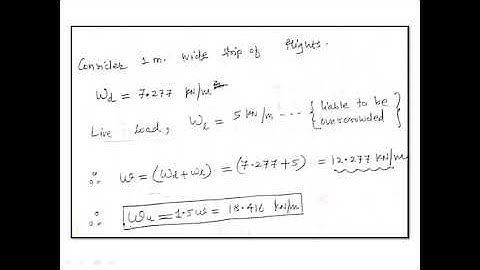 Consider 1 m. wide strip of flights.
Wd = 7.277 kN/m
Live Load, WL = 5 kN/m --- {liable to be overcrowded}
∴ W = (Wd + WL) = (7.277 + 5) = 12.277 kN/m
∴ Wu = 1.5W = 18.416 kN/m